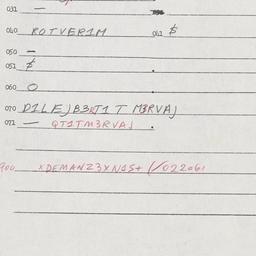 031 —
040 ROTVER1M 041 $
050 —
051 $
060 O
070 D1LEJB3QT1T M3RVAJ
071 — QT1TM3RVAJ .
900 xDEMANZ3xN1S+ (/022061